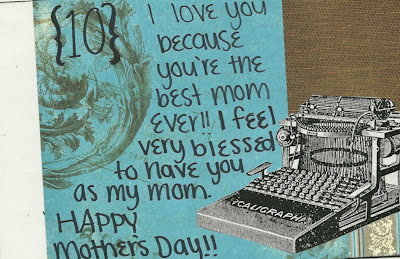 {10}
I love you
because
you're the
best mom
ever!! I feel
very blessed
to have you
as my mom.
HAPPY
Mother's Day!!
CALIGRAPH